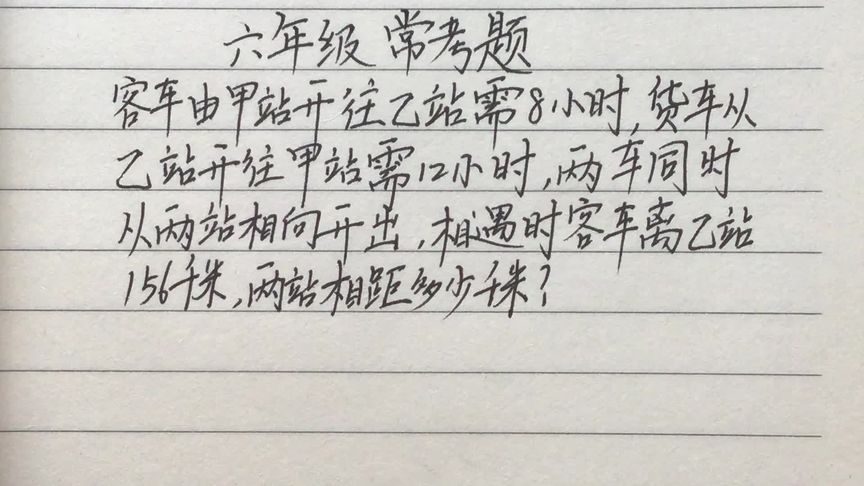 六年级 常考题
客车由甲站开往乙站需8小时,货车从
乙站开往甲站需12小时,两车同时
从两站相向开出,相遇时客车离乙站
156千米,两站相距多少千米?